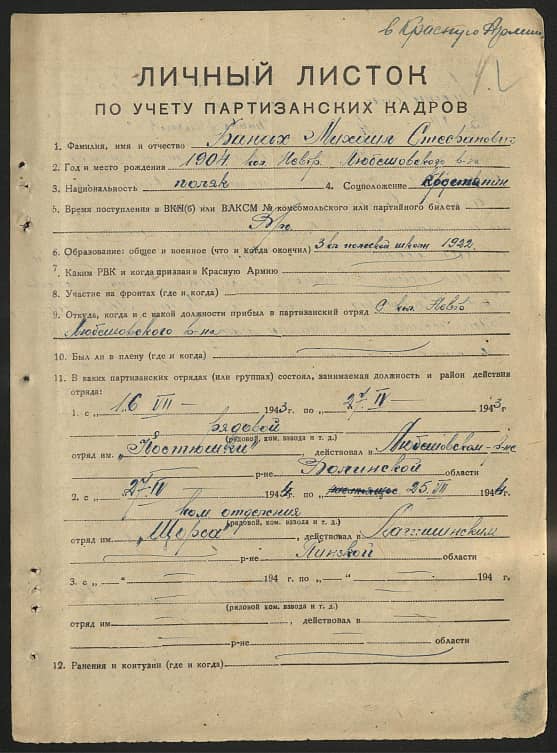 в Красную Армию
ЛИЧНЫЙ ЛИСТОК
ПО УЧЕТУ ПАРТИЗАНСКИХ КАДРОВ
1. Фамилия, имя и отчество Михаил Стефанович
2. Год и место рождения 1904 кол. Любешовского р-на
3. Национальность поляк 4. Соцположение
5. Время поступления в ВКП(б) или ВЛКСМ № комсомольского или партийного билета
б/п
6. Образование: общее и военное (что и когда окончил) 3 кл. школы 1922
7. Каким РВК и когда призван в Красную Армию
8. Участие на фронтах (где и когда)
9. Откуда, когда и с какой должности прибыл в партизанский отряд С кол.
Любешовского р-на
10. Был ли в плену (где и когда)
11. В каких партизанских отрядах (или группах) состоял, занимаемая должность и район действия
отряда:
1. с „ 16 VII — 1943 г. по „ 27 IV — 1943
рядовой
(рядовой, ком. взвода и т. д.)
отряд им. „Костюшки", действовал в Любешовском р-не
р-не Волинской области
2. с „ 27 IV 1944 г. по „ 25. VII 1944 г.
ком отделения
(рядовой, ком. взвода и т. д.)
отряд им „Щорса", действовал в
р-не Пинской области
3. с „ — " 194 г. по „ — " 194 г.
(рядовой ком. взвода и т. д.)
отряд им , действовал в
р-не области
12. Ранения и контузии (где и когда)